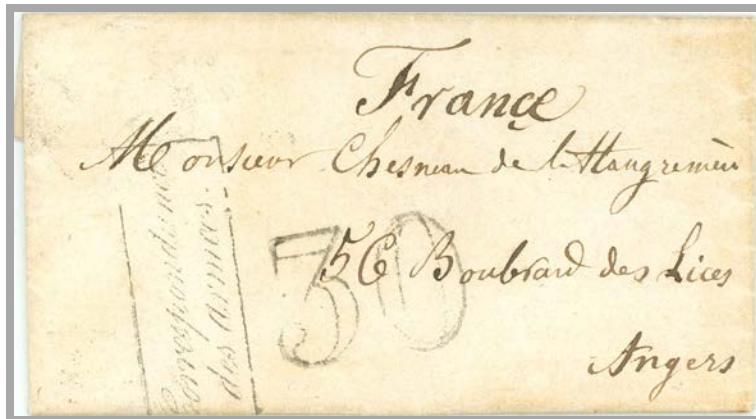 France
Monsieur Chesneau de la Haugrenière
56 Boulvard des Lices
Angers
30
Correspondance
des armées.